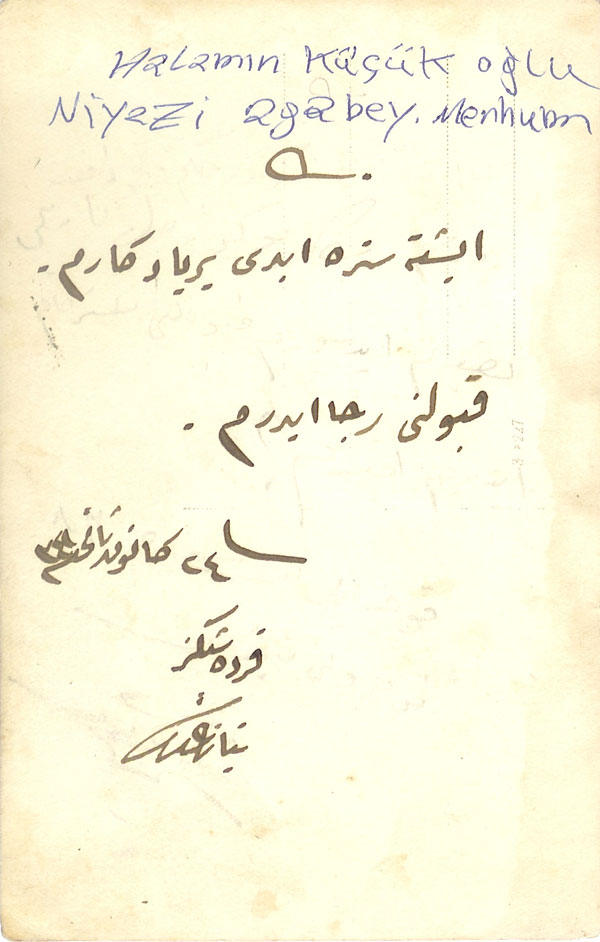 Halamın Küçük oğlu
Niyazi agabey. Merhum
ایشته سزه ابدی بر یادكارم .
قبولنی رجا ایدرم .
٢٤ كانون ثانی
قرده شكز
نیازی